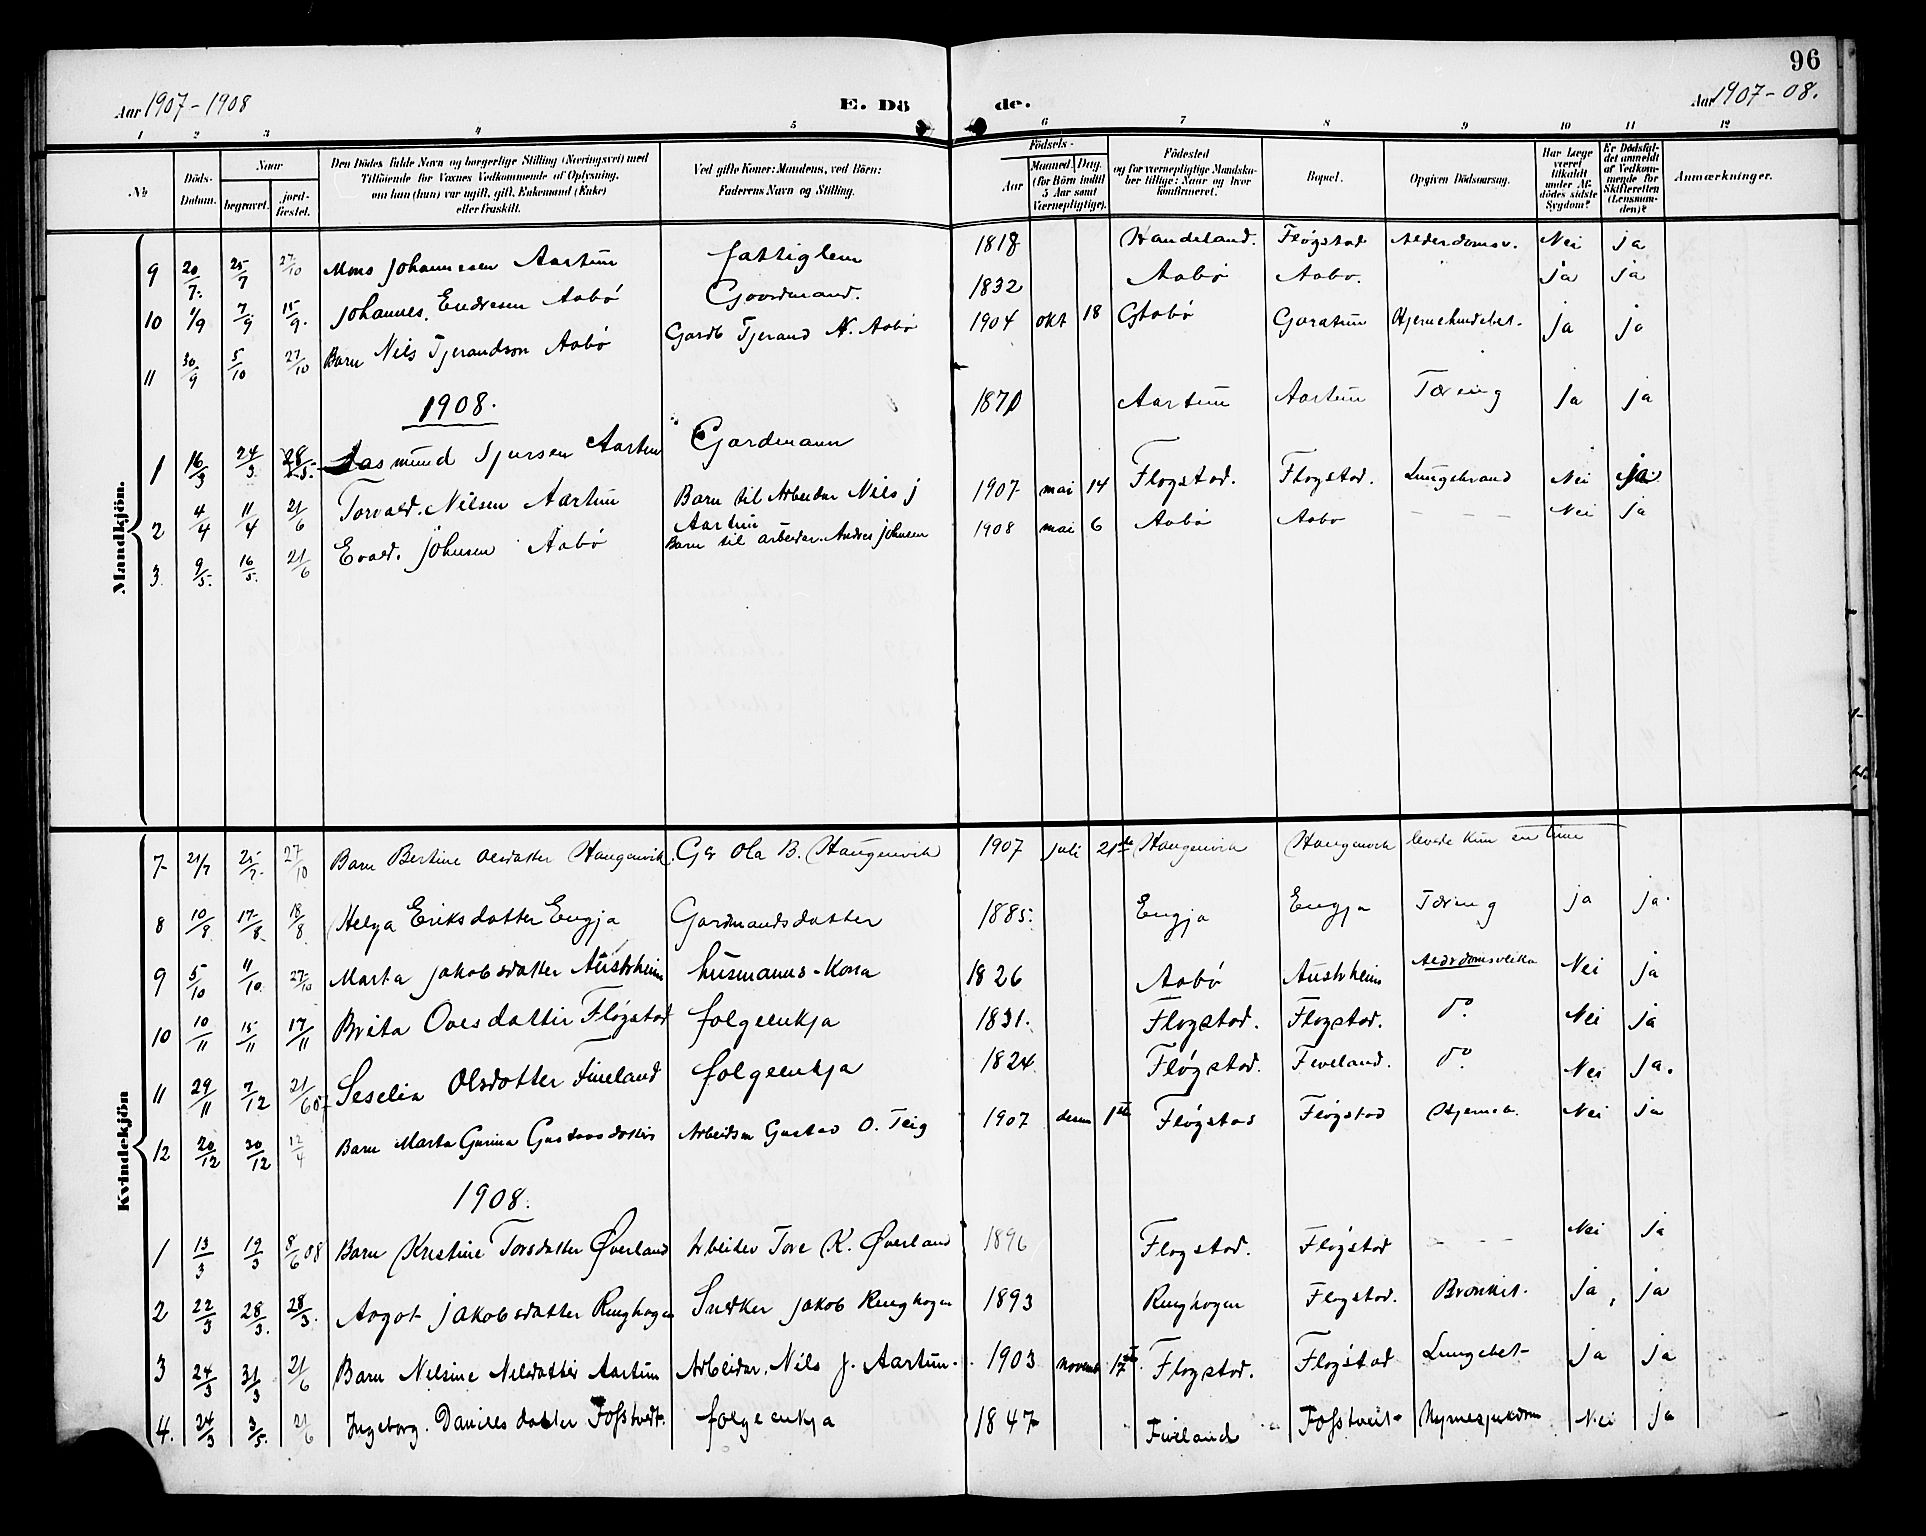 96
Aar 1907-1908 E. Dö de. Aar 1907-08.
1 2 3 4 5 6 7 8 9 10 11 12
No. Döds-Datum. Naar begravet. jord-fæstet. Den Dödes fulde Navn og borgerlige Stilling (Næringsvei) med Tilföiende for Voxnes Vedkommende af Oplysning, om han (hun) var ugift, gift, Enkemand (Enke) eller fraskilt. Ved gifte Koner: Mandens, ved Börn: Faderens Navn og Stilling. Födsels- Aar Maaned. Dag. (for Börn indtil 5 Aar samt Værnepligtige). Födested og for værnepligtige Mandska-ber tillige: Naar og hvor konfirmeret. Bopæl. Opgiven Dödsaarsag. Har Læge været tilkaldt under Af-dödes sidste Sygdom? Er Dödsfal-det anmeldt af Vedkom-mende for Skifteretten (Lensman-den)? Anmærkninger.
Mandkjön.
9 20/7. 25/7 27/10 Mons Johannesen Aartun fattiglem 1818 Handeland. Fløgstad Alderdomsv. Nei ja
10 1/9 7/9 15/9. Johannes. Endresen Aabø Gaardmand. 1832 Aabø Aabø. ja ja
11 30/9 5/10 27/10 Barn Nils Tjerandson Aabø Gardb Tjerand N. Aabø 1904 okt 18 Aabø Hjernehindebet. ja ja
1908.
1 16/3 24/3 28/5- Aasmund Sjursen Aartun Gardmann 1870 Aartun Aartun Tæring Ja ja
2 4/4 11/4 21/6 Torvald. Nilsen Aartun Barn til Arbeidar Nils J Aartun 1907 mai 14 Flogstad. Flogstad. Lungebrand Nei ja
3. 9/5. 16/5. 21/6 Evald. Johnsen Aabø Barn til arbeidar. Andres Johnsen 1908 mai 6 Aabø Aabø - - - Nei ja
Kvindekjön
7 21/7 25/7. 27/10 Barn Bertine Olsdatter Haugenvik. Gbr Ola B. Haugenvik 1907 juli 21de Haugenvik Haugenvik levede kun en time
8 10/8 17/8. 18/8. Helga Eriksdatter Engja Gardmandsdatter 1885. Engja Engja Tæring ja ja.
9 5/10 11/10. 27/10 Marta Jakobsdatter Austrheim husmanns-Kona 1826 Aabø Austrheim Alderdomsveikn Nei ja
10 10/11 15/11 17/11 Brita Ovesdatter Fløgstad folgeenkja 1831. Flogstad. Flogstad. do. Nei ja
11 29/11 7/12 21/6 Seselia Olsdatter Fiveland folgeenkja 1824 Fløgstad. Fiveland. do. Nei ja.
12 20/12 30/12 12/4 Barn Marta Gurina Gustavsdatter Arbeidsm Gustav O. Teig 1907 desm 1ste Fløgstad Fløgstad Hjerneb. Nei ja
1908.
1 13/3 19/3 8/6 08 Barn Kristine Torsdatter Øverland Arbeider Tore K. Øverland 1896 Flogstad. Fløgstad - - - Nei ja
2 22/3 28/3. 28/3. Aagot Jakobsdatter Ringhagen Snedker Jakob Ringhagen 1893 Ringhagen Flogstad. Bronkit. ja, ja
3 24/3 31/3 21/6 Barn Nelsine Nilsdatter Aartun Arbeidar. Nils J. Aartun. 1903 novemb 17de Flogstad. Flogstad Lungebet- ja ja
4. 24/3 3/5. 21/6 Ingeborg. Danielsdatter Fosstvedt. folgeenkja 1847 Fiveland Fosstveit Nyrnesjukdom Nei ja